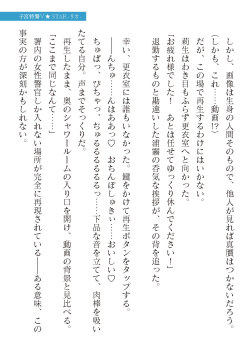 しかし、画像は生身の人間そのもので、他人が見れば真贋はつかないだろう。
（しかも、これ……動画!?）
だが、この場で再生するわけにはいかない。
莉生はわき目もふらず更衣室へと向かった。
「お疲れ様でした！　あとは任せてゆっくり休んでください！」
退勤するものと勘違いした浦霧の呑気な挨拶が、その背を追った。

幸い、更衣室には誰もいなかった。鍵をかけて再生ボタンをタップする。
『――んちゅ……んはああ♡　おちんぽしゅきぃ……おいしい♡
ちゅぱっ、ぴちゃっ、ちゅるるるるるっ……』下品な音を立てて、肉棒を吸い
たてる自分。声まで声までそっくりだ。
再生したまま、奥のシャワールームの入り口を開け、動画の背景と見比べる。
「ここまで同じなんて……」
署内の女性警官しか入れない場所が完全に再現されている――ある意味、この
事実の方が深刻かもしれない。